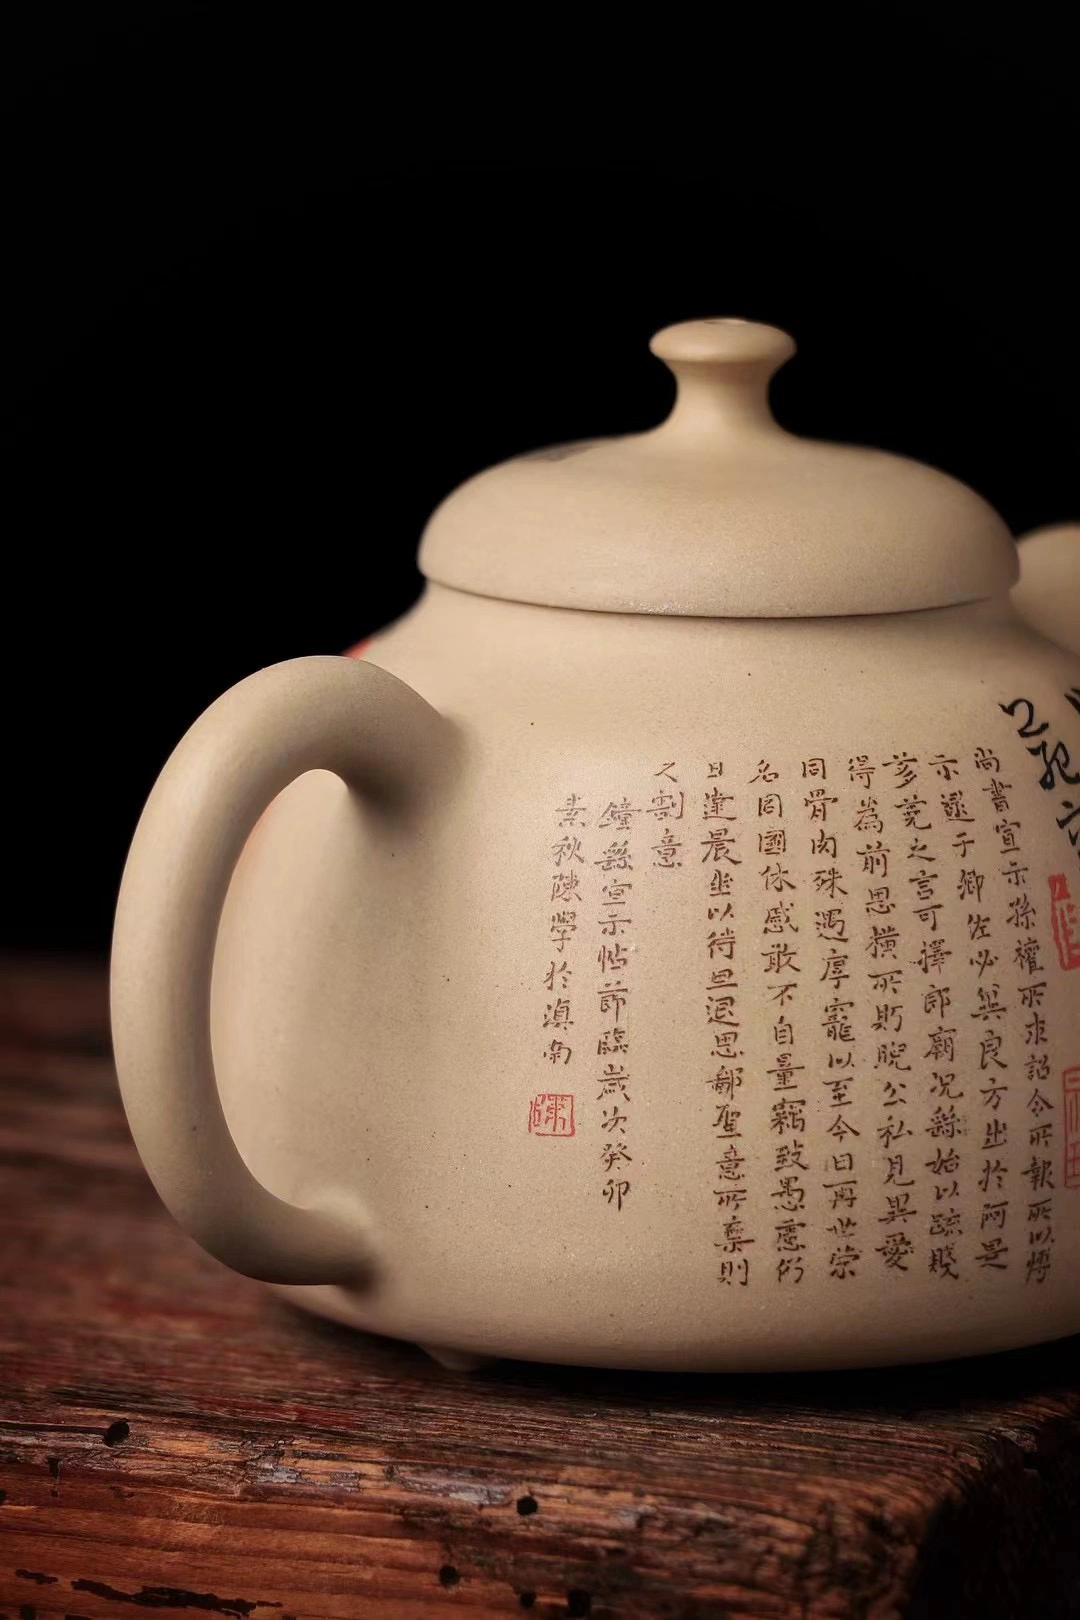 尚書宣示孫權所求詔令所報所以博
示逮于卿佐必兾良方出於阿是
芻蕘之言可擇郎廟况繇始以疏賤
得為前恩橫所眄睨公私見異愛
同骨肉殊遇厚寵以至今日再世榮
名同國休慼敢不自量竊致愚慮仍
日達晨坐以待旦退思鄙聖意所棄則
又割意
鐘繇宣示帖節臨歲次癸卯
素秋陳學於滇南
陳